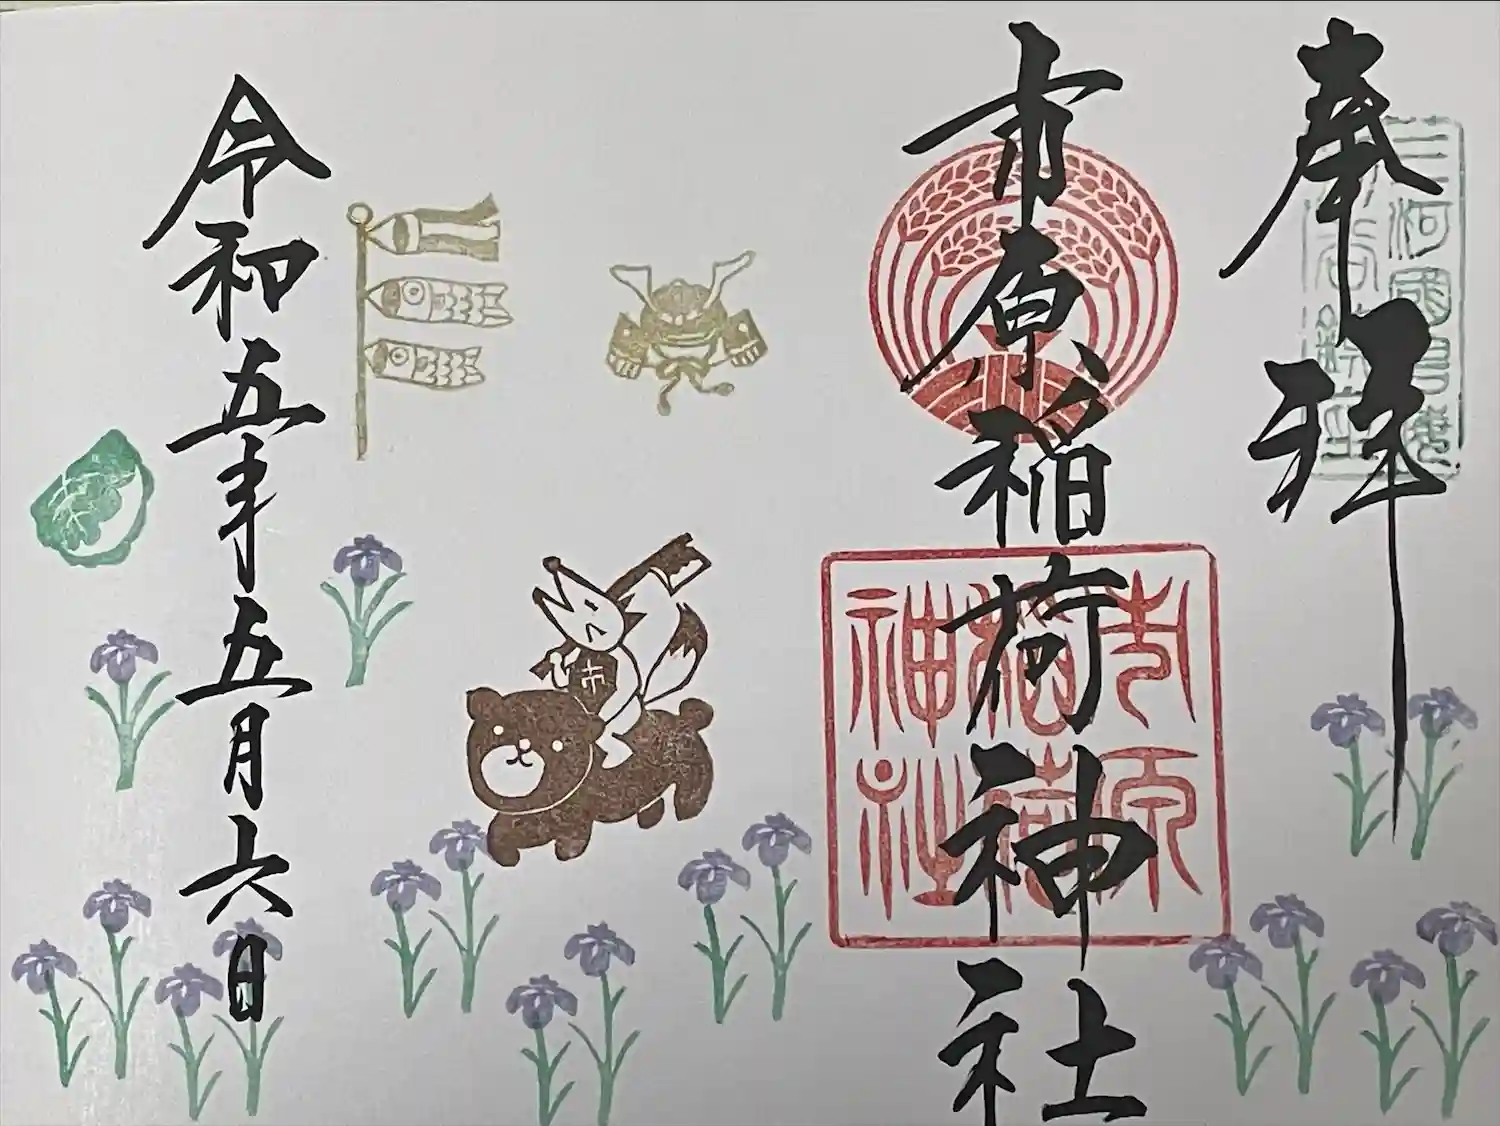 奉拝
三河國
刈谷鎮座
市原稲荷神社
市原
稲荷
神社
市
令和五年五月六日